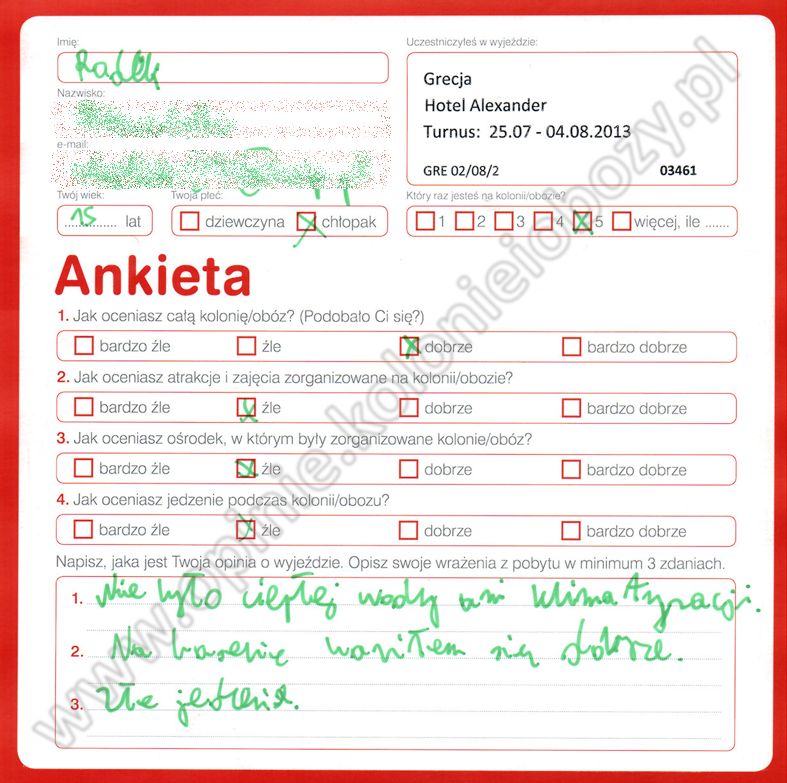 Imię:
Uczestniczyłeś w wyjeździe:
Radek
Grecja
Hotel Alexander
Turnus: 25.07 - 04.08.2013
GRE 02/08/2 03461
Nazwisko:
e-mail:
Twój wiek:
Twoja płeć:
Który raz jesteś na kolonii/obozie?
15 lat
dziewczyna chłopak
1 2 3 4 5 więcej, ile .......
Ankieta
1. Jak oceniasz całą kolonię/obóz? (Podobało Ci się?)
bardzo źle źle dobrze bardzo dobrze
2. Jak oceniasz atrakcje i zajęcia zorganizowane na kolonii/obozie?
bardzo źle źle dobrze bardzo dobrze
3. Jak oceniasz ośrodek, w którym były zorganizowane kolonie/obóz?
bardzo źle źle dobrze bardzo dobrze
4. Jak oceniasz jedzenie podczas kolonii/obozu?
bardzo źle źle dobrze bardzo dobrze
Napisz, jaka jest Twoja opinia o wyjeździe. Opisz swoje wrażenia z pobytu w minimum 3 zdaniach.
1. Nie było ciepłej wody ani klimatyzacji.
2. Na basenie bawiłem się dobrze.
3. Złe jedzenie.
www.opinie.kolonieiobozy.pl